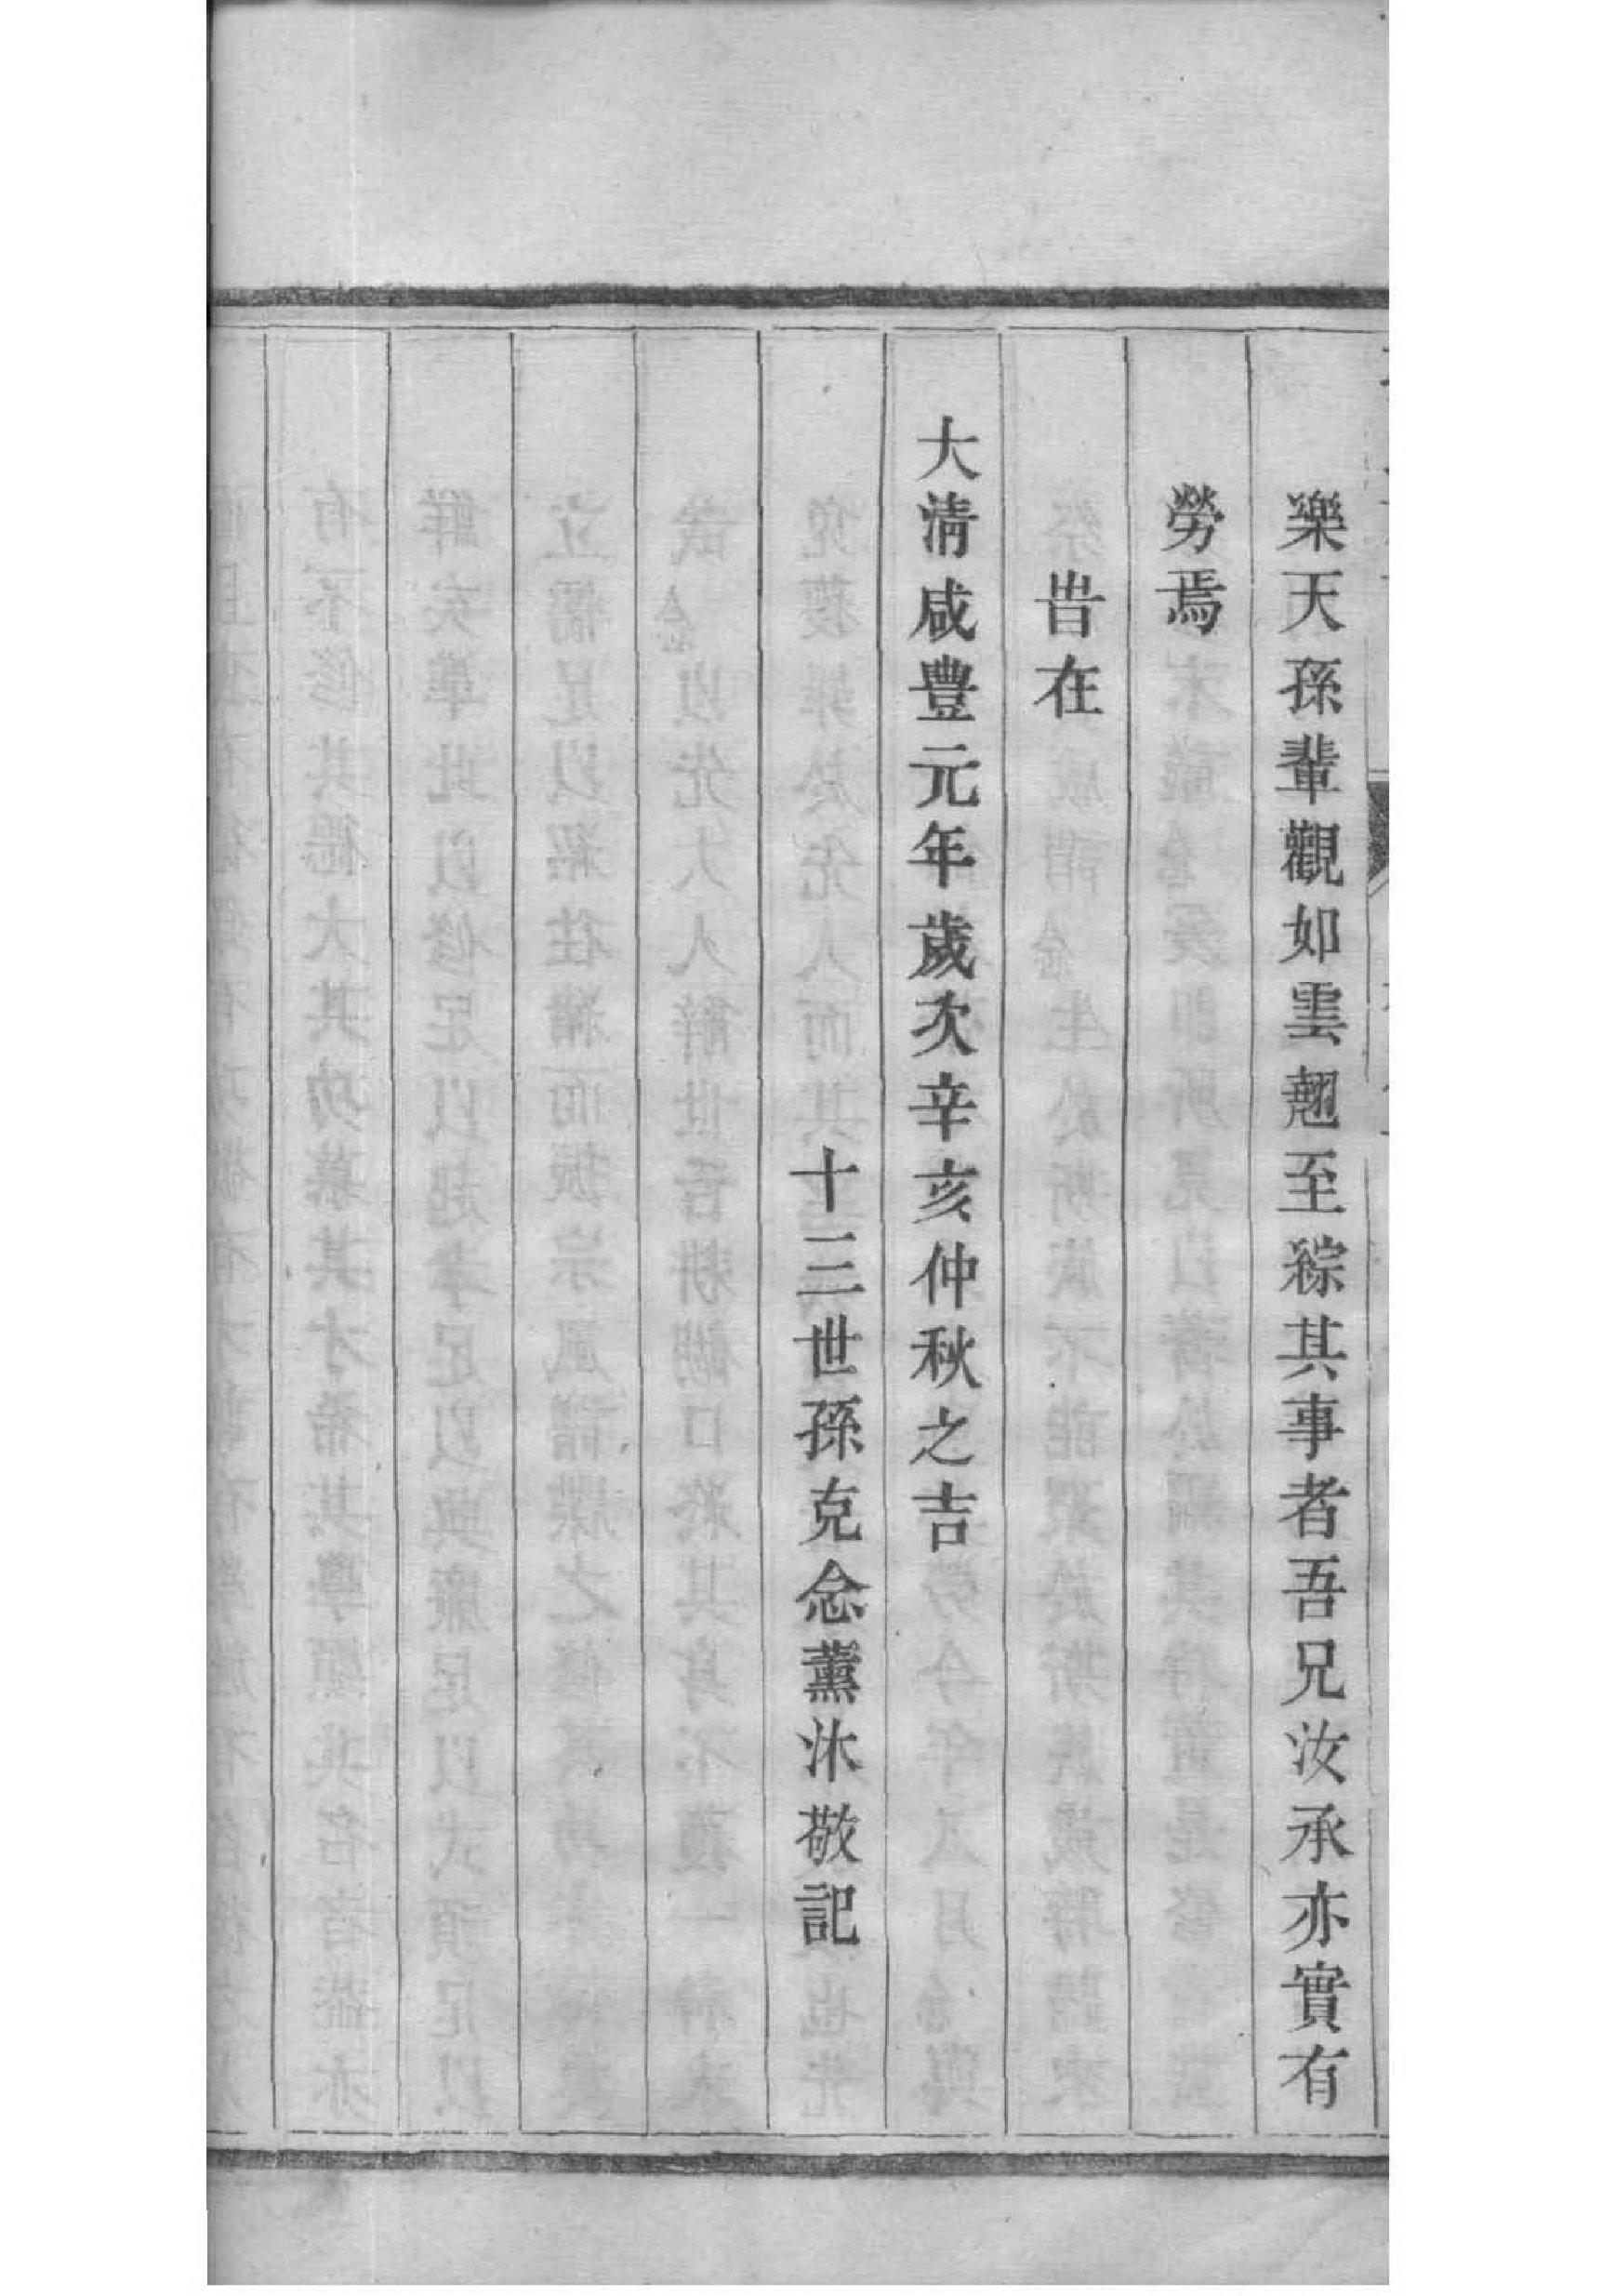 樂天孫輩觀如雲翹至綜其事者吾兄汝承亦實有
勞焉
旹在
大清咸豐元年歲次辛亥仲秋之吉
十三世孫克念薰沐敬記